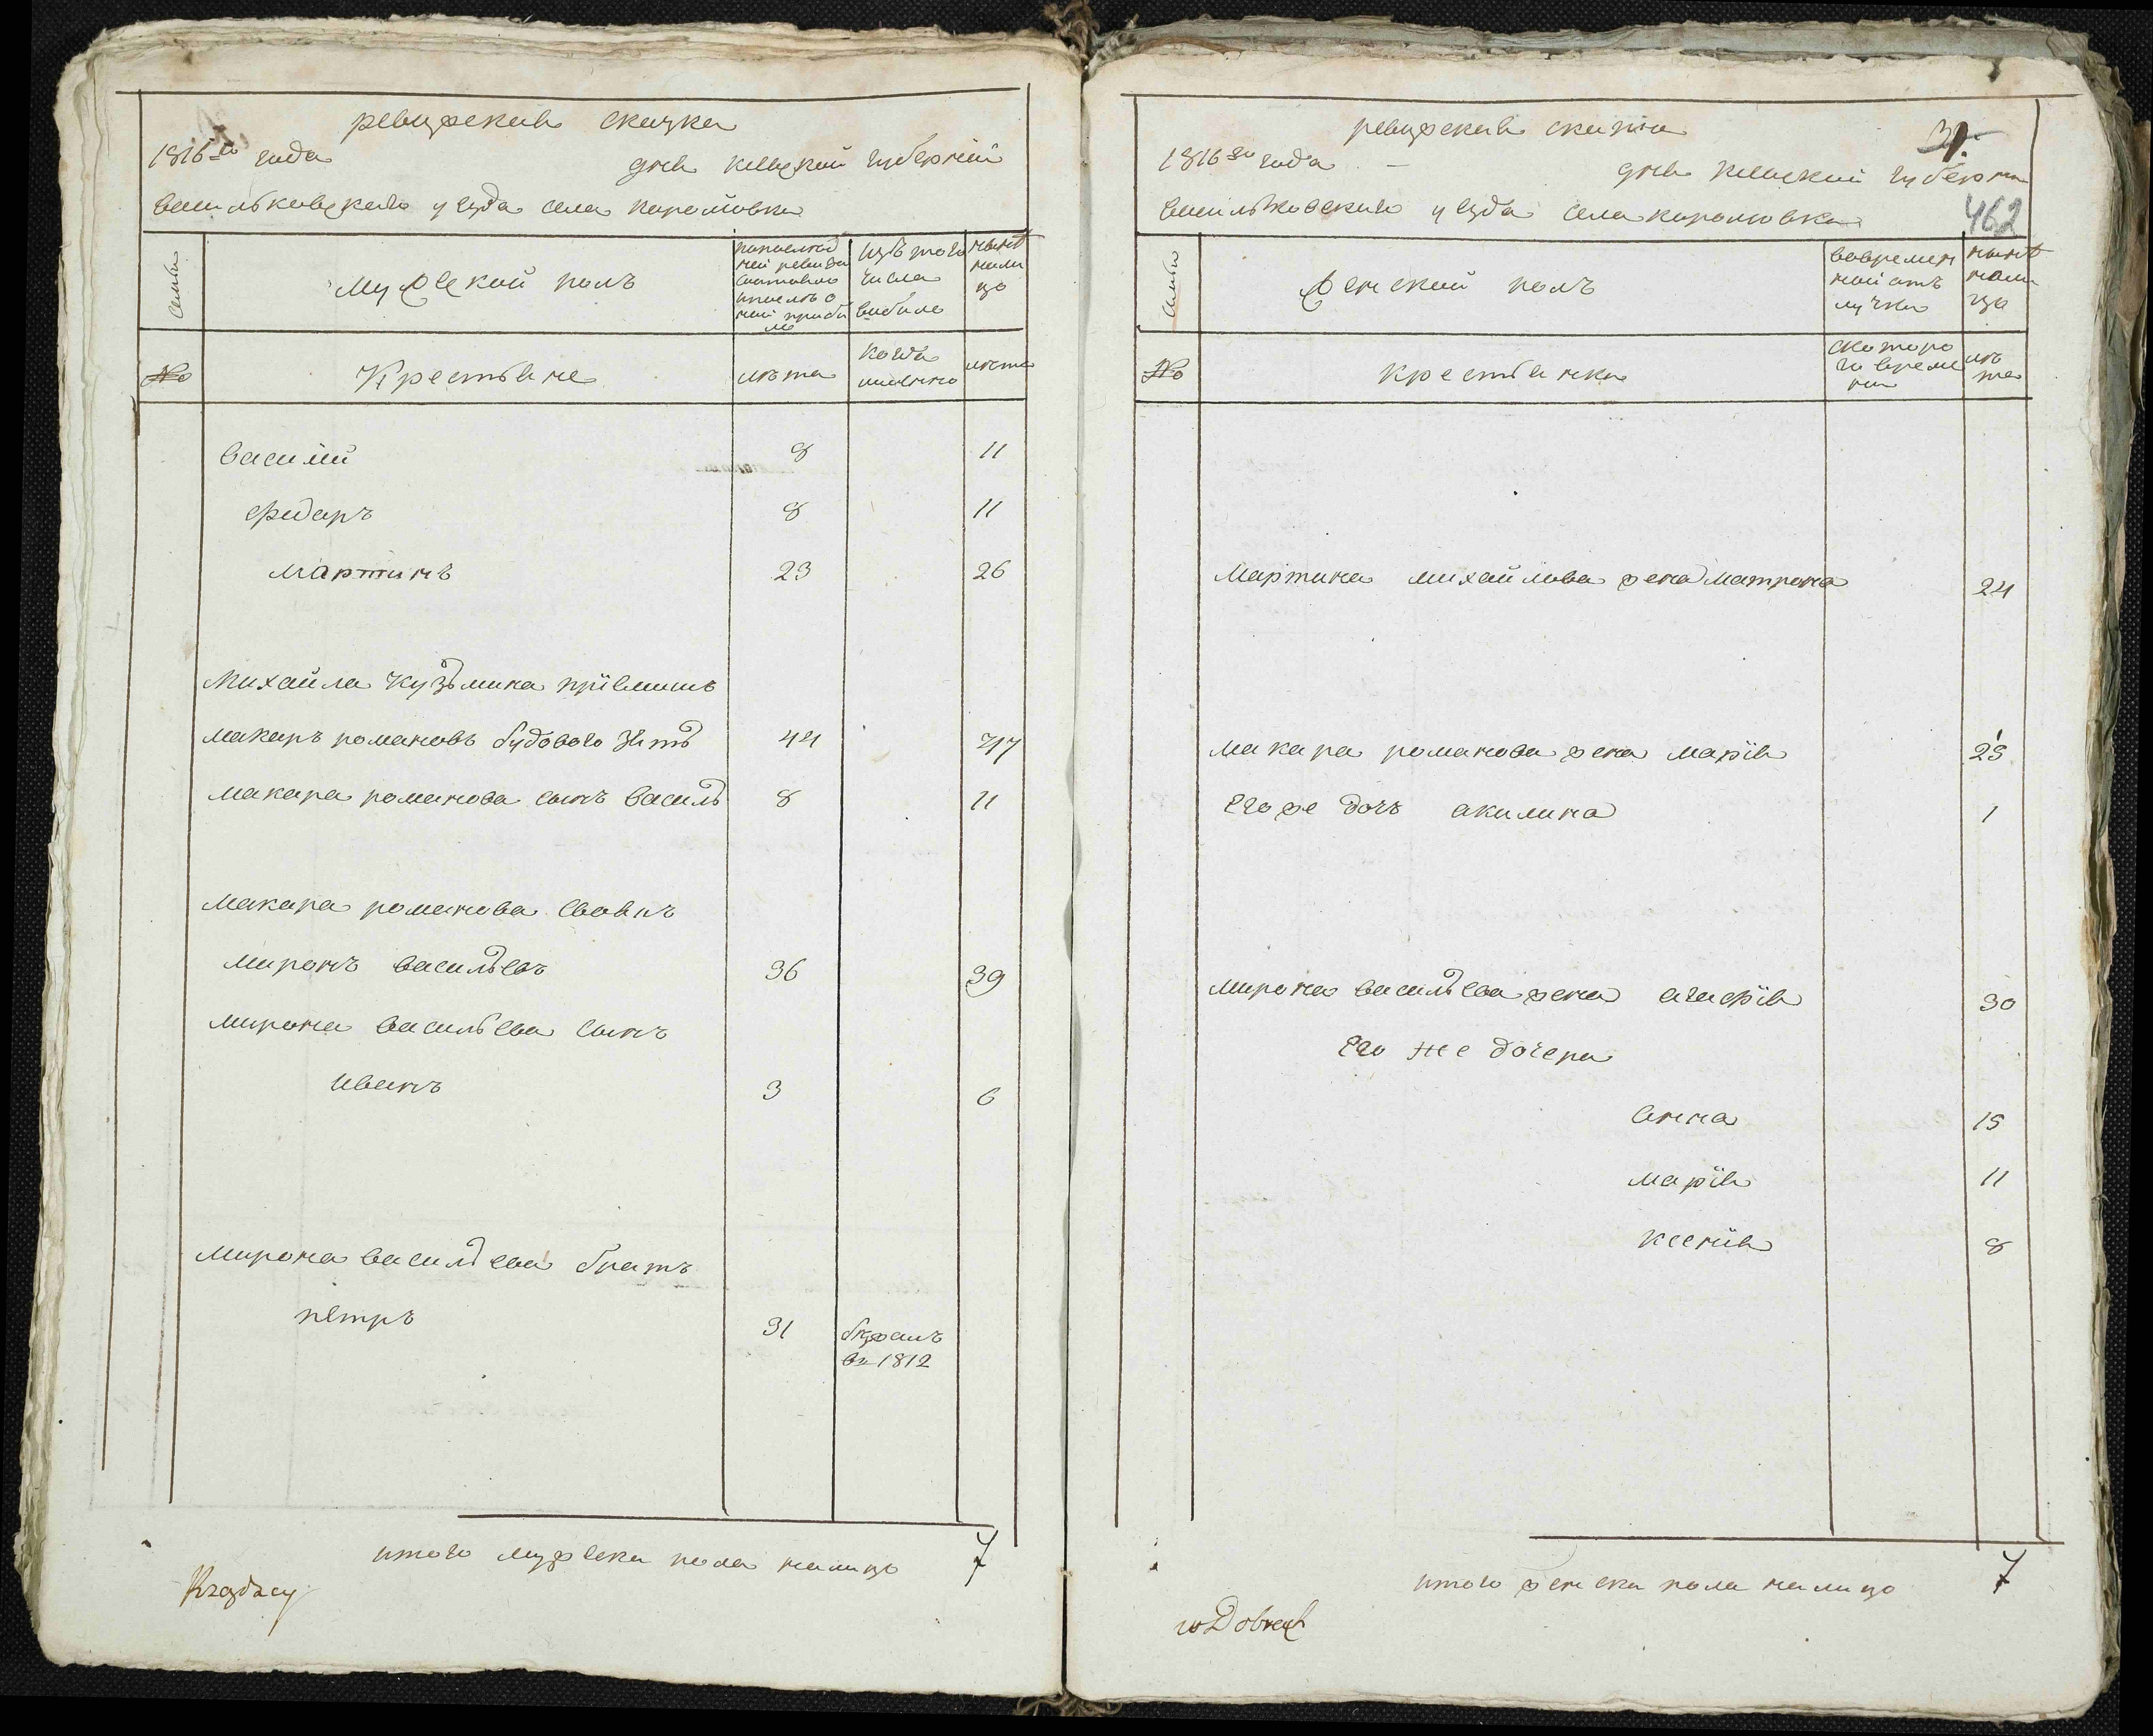 ревизская сказка
1816го года
дня киевской губернии
васильковского уезда села королювки
Семьи
мужеской полъ
по последней ревизии состояло и после оной прибыло
изъ того числа выбыло
ныне налицо
№
Крестьяне
лета
когда именно
лета
василий 8 11
Федоръ 8 11
мартинъ 23 26
михайла Кузьмина приемишъ
макаръ романовъ будового зять 44 47
макара романова сынъ василь 8 11
макара романова своякъ
миронъ васильевъ 36 39
мирона васильева сынъ
иванъ 3 6
мирона васильева братъ
петръ 31 бежалъ
въ 1812
итого мужеска пола налицо 7
Rządzcy
ревизская сказка
31.
1816го года
дня киевской губернии
462
васильковского уезда села королювки
Семьи
женской полъ
во временной отлучке
ныне налицо
№
крестьянки
с которого времени
лета
Мартина михайлова жена матрона 24
макара романова жена мария 25
его же дочь акилина 1
мирона васильева жена агафия 30
его же дочери
анна 15
мария 11
ксения 8
итого женска пола налицо 7
w Dobrach